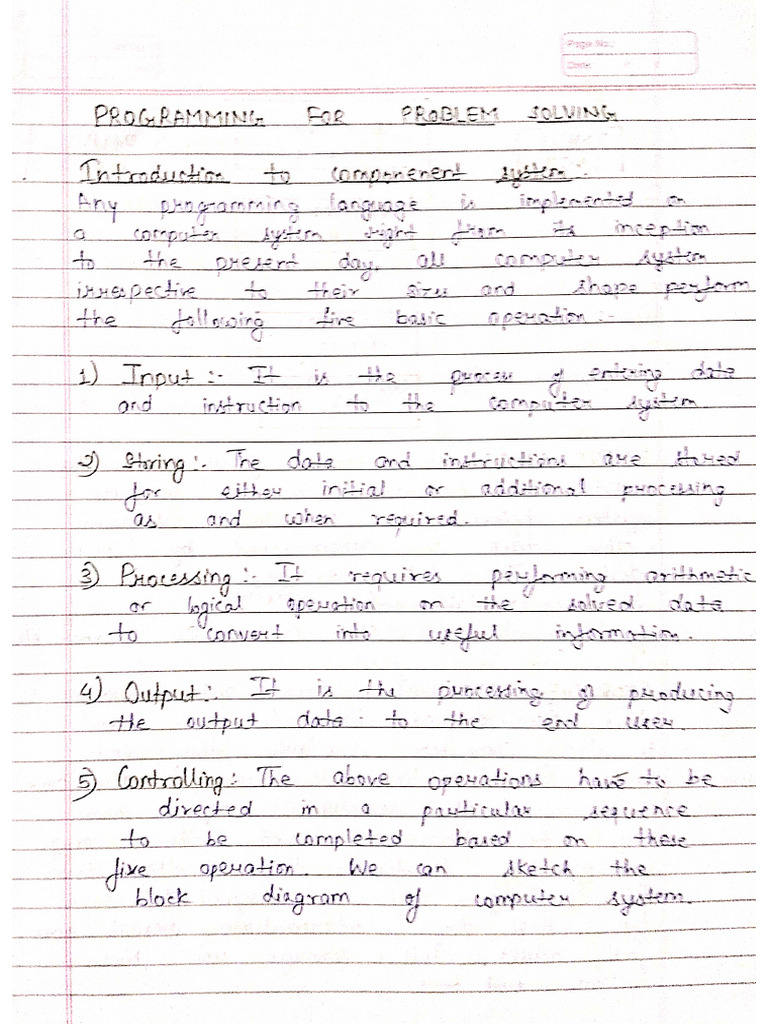 Page No.
Date
PROGRAMMING FOR PROBLEM SOLVING
Introduction to componenent system :-
Any programming language is implemented on
a computer system right from its inception
to the present day, all computer system
irrespective to their sizes and shape perform
the following five basic operation :-
1) Input :- It is the process of entering data
and instruction to the computer system
2) Storing :- The data and instructions are stored
for either initial or additional processing
as and when required.
3) Processing :- It requires performing arithmetic
or logical operation on the solved data
to convert into useful information.
4) Output :- It is the processing of producing
the output data to the end user.
5) Controlling : The above operations have to be
directed in a particular sequence
to be completed based on these
five operation. We can sketch the
block diagram of computer system.